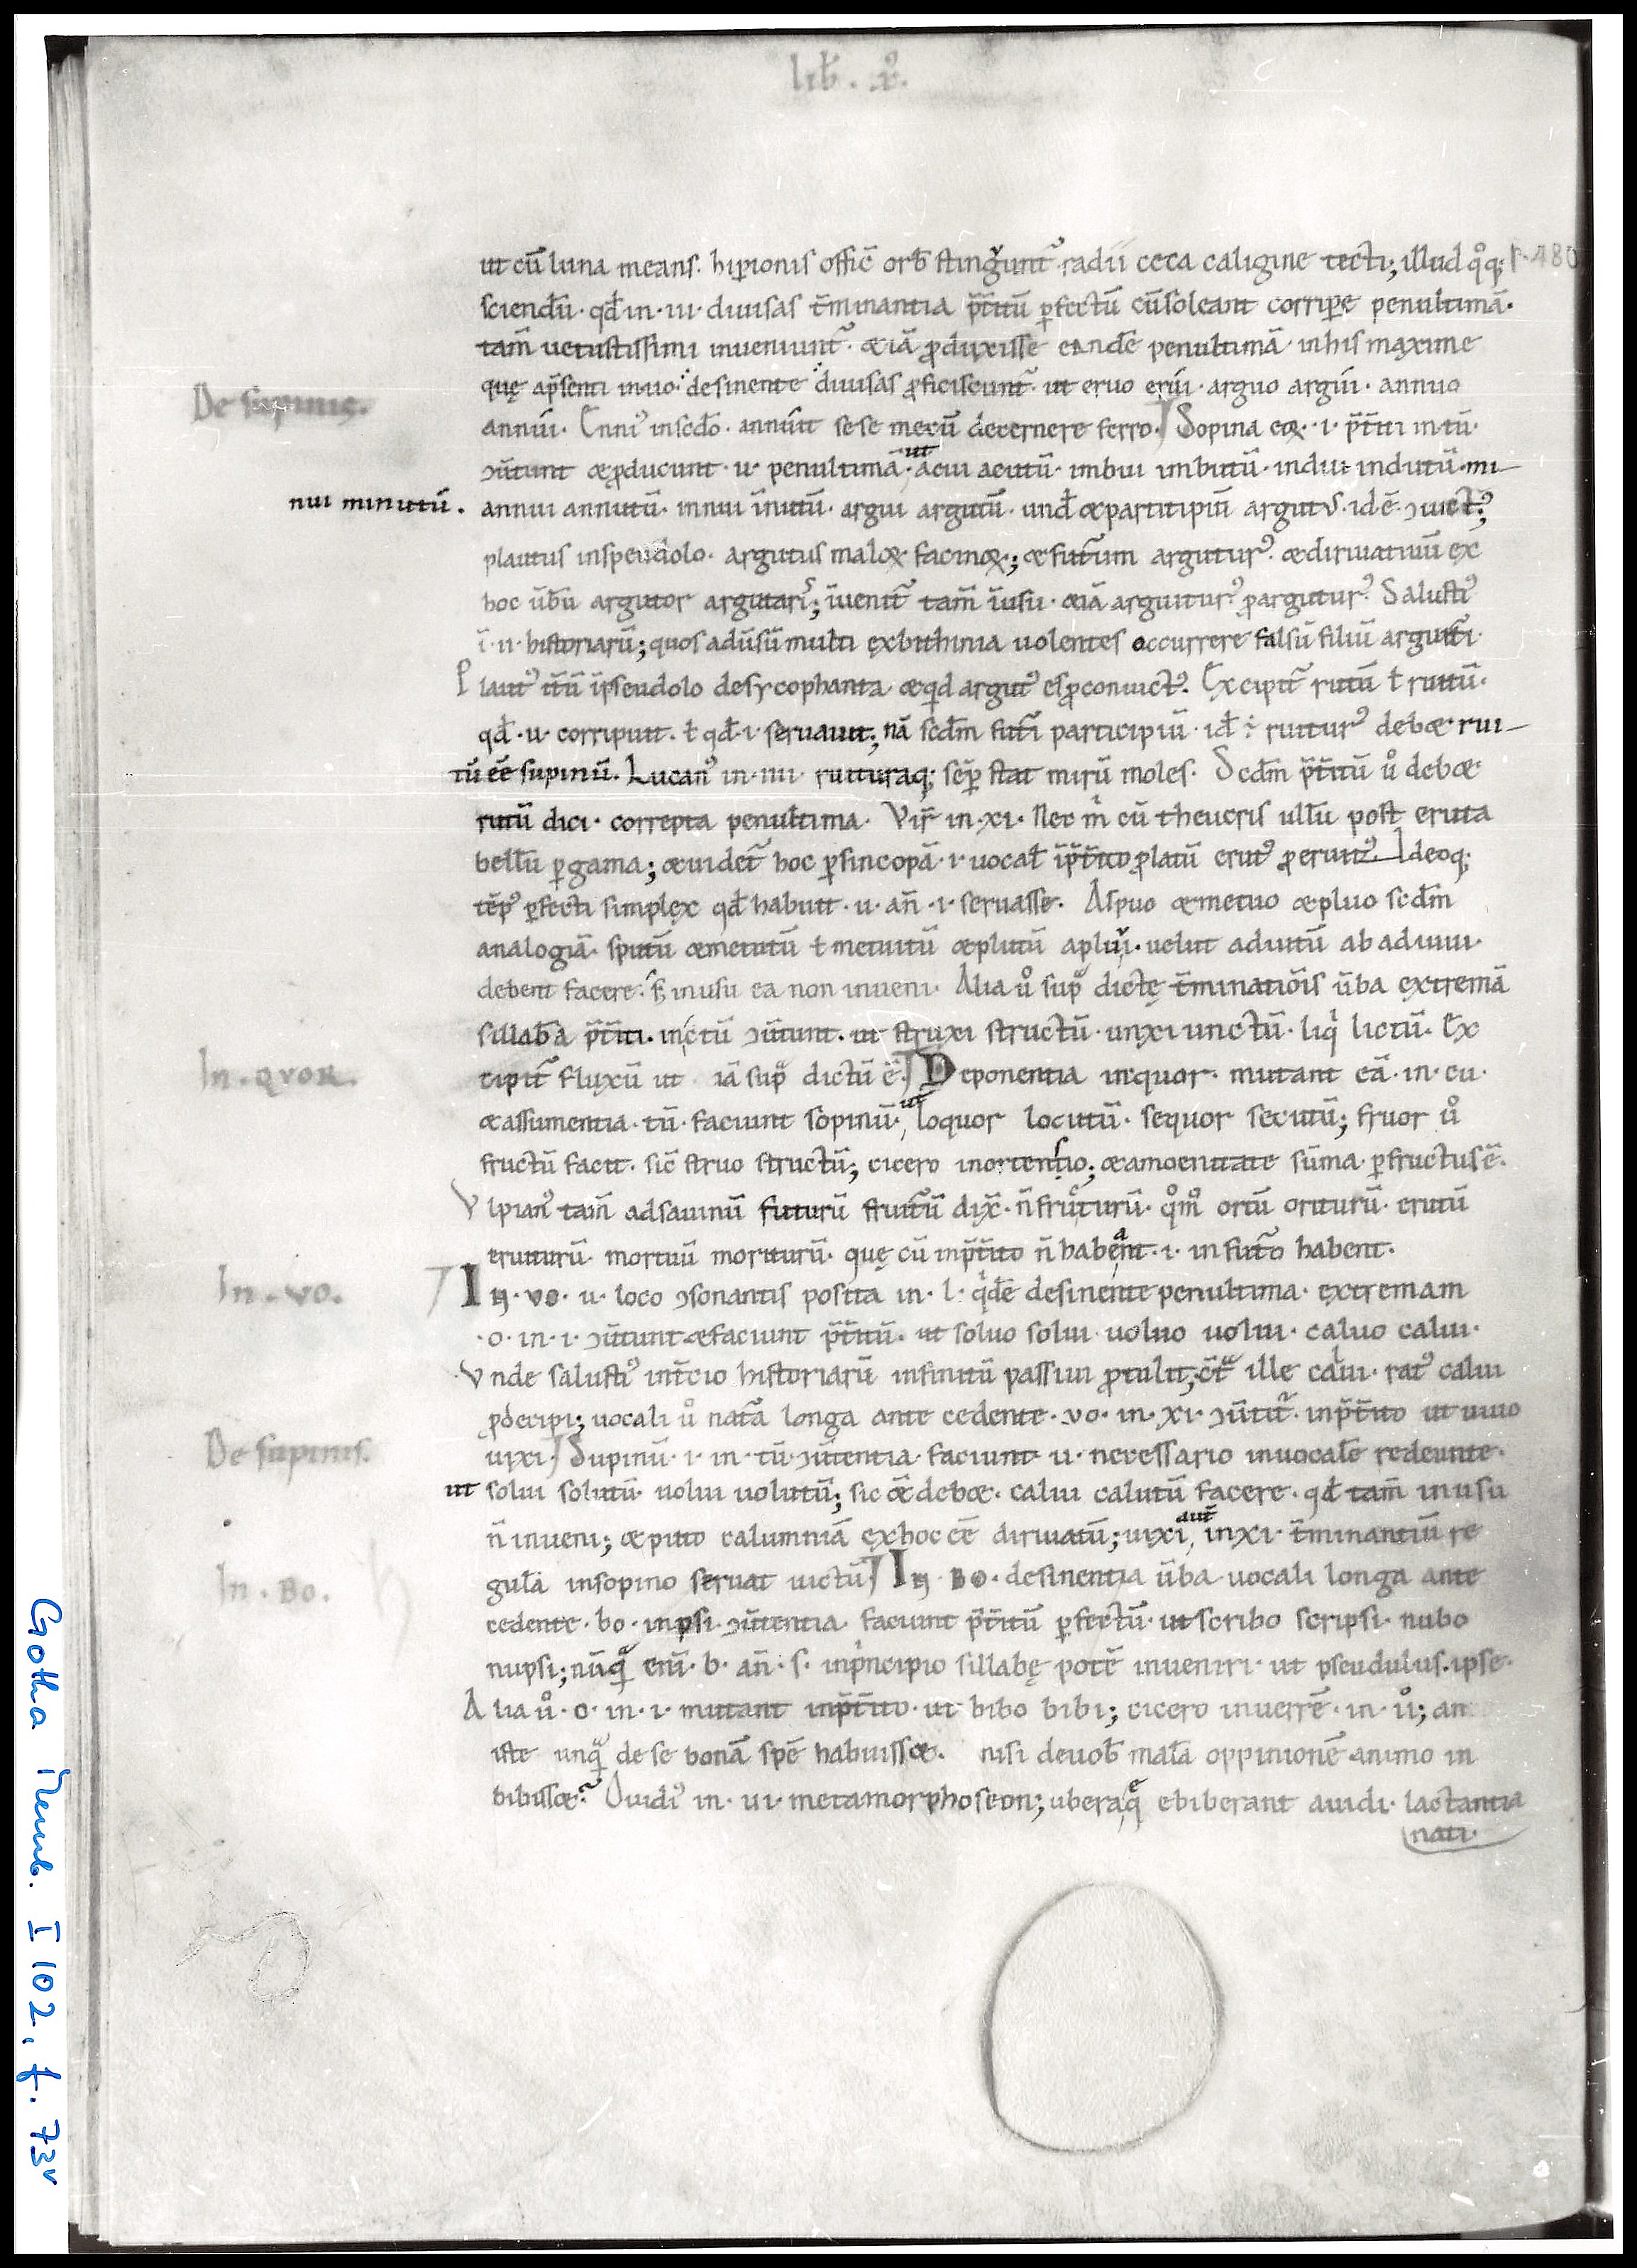 lib̄. x°.
ut cū luna means. hiꝑionis offic̄ orb̄ stingunt᷑ radii ceca caligine tecti; illud qͦq;
p. 480
sciendū · qd̄ in · ui · diuisas t̄minantia p̄t̄itū ꝑfectū cū soleant corripe penultimā ·
tam̄ uetustissimi inueniunt᷑ · & iā ꝓduxisse eandē penultimā in his maxime
De supinis.
quę a p̄senti in uo · desinente diuisas ꝓficiscunt᷑ · ut eruo erúi · arguo argúi · annuo
annúi · Enni᷒ in sc̄do · annúit sese mecū decernere ferro · Sopina eoꝝ · i · p̄t̄iti in tū ·
ꝯūtunt & ꝓducunt · u · penultimā · ut acui acutū · imbui imbutū · indui indutū · mi-
nui minutū .
annui annutū · innui īnutū · argui argutū · und̄ & participiū argutus · id ē · ꝯuict᷒;
plautus in speudolo · argutus maloꝝ facinoꝝ; & futurum arguturꝰ · & diriuatiuū ex
hoc ūbū argutor argutaris; īuenit᷑ tam̄ ī usu · & iā arguiturꝰ ꝓ arguturꝰ. Salustiꝰ
ī · ii · historiarū; quos adusū multi ex bithinia uolentes occurrere falsū filiū arguitī ·
Plautꝰ it̄ū ī pseudolo de sycophanta & qd argutꝰ es ꝓ conuictꝰ. Excipit᷑ rutū ł ruitū ·
qd̄ · u · corripuit . ł qd̄ · i · seruauit; nā sc̄dm futī participiū · id ÷ ruiturꝰ deb& · rui-
tū eē supinū. Lucanꝰ in · iiii · ruituraq; sēp stat mirū moles. Sc̄dm p̄t̄itū uͦ deb& ·
rutū dici · correpta penultima · Vir̄ in · xi · Nec mͥ cū theucris ullū post eruta
bellū ꝑgama; & uidet᷑ hoc ꝑ sincopā · i · uocał ī p̄t̄ito ꝓlatū erutꝰ ꝓ eruitꝰ. Ideoq;
tēpꝰ ꝑfecti simplex qd̄ habuit · u · an̄ · i · seruasse. Aspuo & metuo & pluo sc̄dm
analogiā · sputū & metutū ł metuitū & plutū a plui · uelut aduitū ab aduuui ·
debent facere. sꝫ in usu ea non inueni · Alia uͦ supͣ dictę t̄minatiōis ūba extremā
sillabā p̄t̄iti · in ctū ꝯūtunt · ut struxi structū · unxi unctū · liqͥ lictū. Ex
In . quor.
cipit᷑ fluxū ut iā supͣ dictū ē. Deponentia in quor · mutant eā · in · cu ·
& assumentia · tū · faciunt sopinū · ut loquor locutū · sequor secutū; fruor uͦ
fructū facit · sic̄ struo structū; cicero in ortensio; & amoenitate sūma ꝑfructus ē.
Vlpianꝰ tam̄ ad sauinū futurū fruitū dix̄ · n̄ fructurū · qͦm̄ ortū oriturū · erutū
eruiturū · mortuū moriturū · quę cū in p̄t̄ito n̄ habeant · i · in futō habent ·
In . vo.
In · vo · u · loco ꝯsonantis posita in · l · qͥdē desinente penultima · extremam
· o · in · i · ꝯūtunt & faciunt p̄t̄itū · ut soluo solui uoluo uolui · caluo calui ·
Vnde salustiꝰ in t̄cio historiarū infinitū passiui ꝓtulit; cͨtͣ ille calui · ratꝰ calui
ꝓ decipi; uocali uͦ natā longa ante cedente · vo · in · xi · ꝯūtit᷑ · in p̄t̄ito ut uiuo
De supinis.
uixi · Supinū · i · in · tū · ꝯūtentia · faciunt u · necessario in uocalē redeunte ·
ut solui solutū · uolui uolutū; sic &̄ deb& · calui calutū facere · qd̄ tam̄ in usu
n̄ inueni; & puto calumniā ex hoc eē diriuatū; uixi aut̄ in xi · t̄minantiū re
In . Bo.
gulā in sopino seruat uictū · In · Bo · desinentia ūba uocali longa ante
cedente · bo · in psi · ꝯūtentia faciunt p̄t̄itū ꝑfectū · ut scribo scripsi · nubo
nupsi; nūqͣ enī · b · an̄ · s · in pͥncipio sillabę potē inueniri · ut pseudulus · ipse ·
Alia uͦ · o · in · i · mutant in p̄t̄ito · ut bibo bibi; cicero in uerrē · in · uͦ; an
iste unqͣ de se bonā spē habuiss& . nisi de uob̄ malā oppinionē animo in
bibiss&? Ouidiꝰ in · ui · metamorphoseon; uberaqͥ ebiberant auidi · lactantia
nati ·
Gotha Memb. I 102, f. 73v